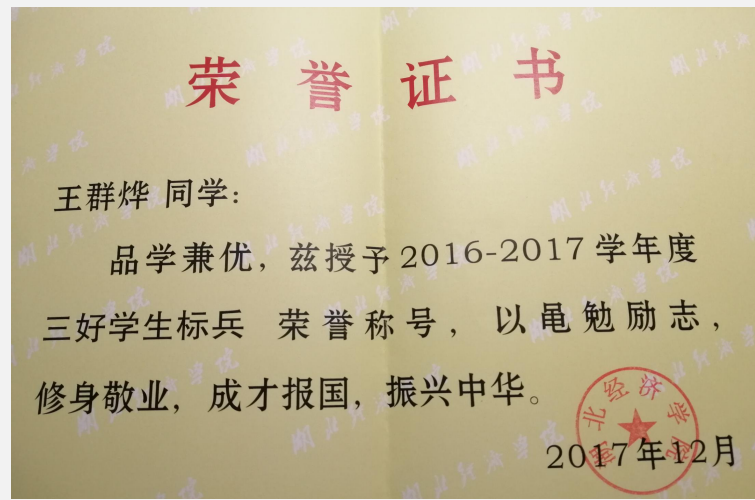 荣誉证书
王群烨 同学:
品学兼优，兹授予2016-2017学年度
三好学生标兵 荣誉称号，以黾勉励志，
修身敬业，成才报国，振兴中华。
湖北经济学院
2017年12月